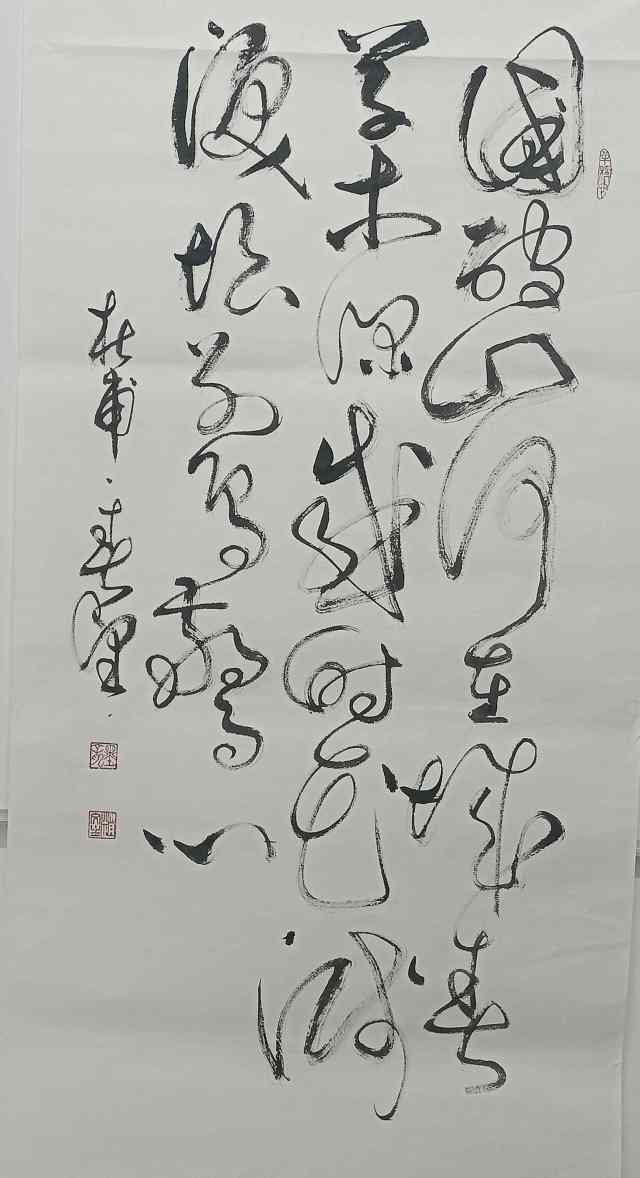 國破山河在城春
草木深感时花溅
淚恨别鸟驚心
杜甫·春望